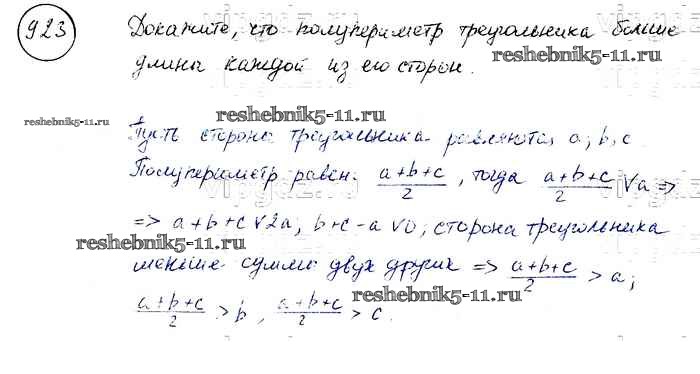 923 Докажите, что полупериметр треугольника больше
длины каждой из его сторон.
reshebnik5-11.ru
reshebnik5-11.ru
reshebnik5-11.ru
Пусть стороны треугольника равняются a, b, c
Полупериметр равен. (a+b+c)/2, тогда (a+b+c)/2 ∨ a =>
=> a+b+c ∨ 2a; b+c-a ∨ 0; сторона треугольника
reshebnik5-11.ru
меньше суммы двух других => (a+b+c)/2 > a;
reshebnik5-11.ru
(a+b+c)/2 > b, (a+b+c)/2 > c.